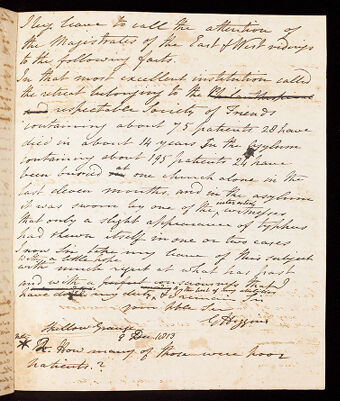 I beg leave to call the attention of
the Magistrates of the East & West ridings
to the following facts.
In that most excellent institution called
the retreat belonging to the Philanthropic
and respectable Society of Friends
containing about 75 patients 28 have
died in about 14 years In the Asylum
containing about 195 patients 24 have
been buried at one church alone in the
last eleven months, and in the asylum
it was sworn by one of the interested witnesses
that only a slight appearance of typhus
had shewn itself in one or two cases
I now Sir take my leave of this subject
with a little hope
with much regret at what has past
and with a consciousness that I
have done my duty, & I remain Sir
your Oble Serv
G Higgins
Skellow Grange
9 Dec 1813
How many of those were poor
patients?